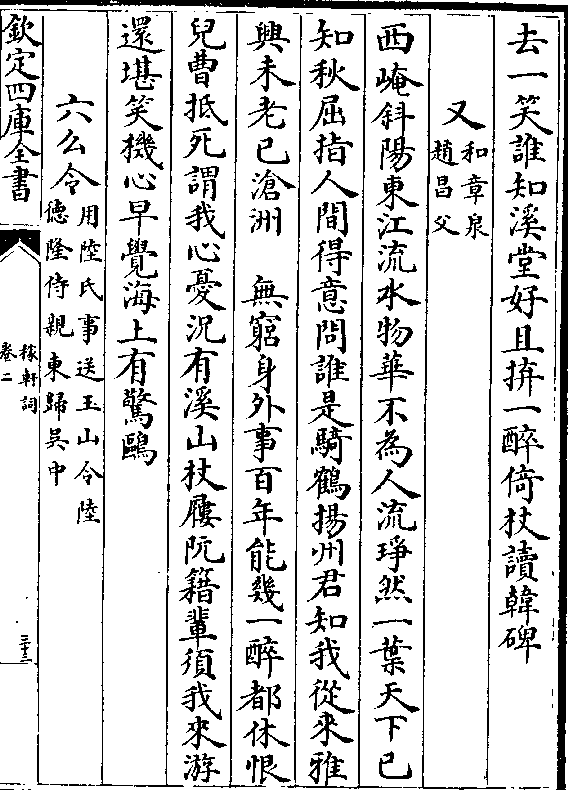 去一笑誰知溪堂好且拚一醉倚杖讀韓碑
又和章泉趙昌父
西崦斜陽東江流水物華不為人流琤然一葉天下已
知秋屈指人間得意問誰是騎鶴揚州君知我從來雅
興未老已滄洲　無窮身外事百年能幾一醉都休恨
兒曹抵死謂我心憂況有溪山杖屨阮籍輩須我來游
還堪笑機心早覺海上有驚鷗
六么令用陸氏事送玉山令陸德隆侍親東歸吳中
欽定四庫全書
稼軒詞
卷二
三十三